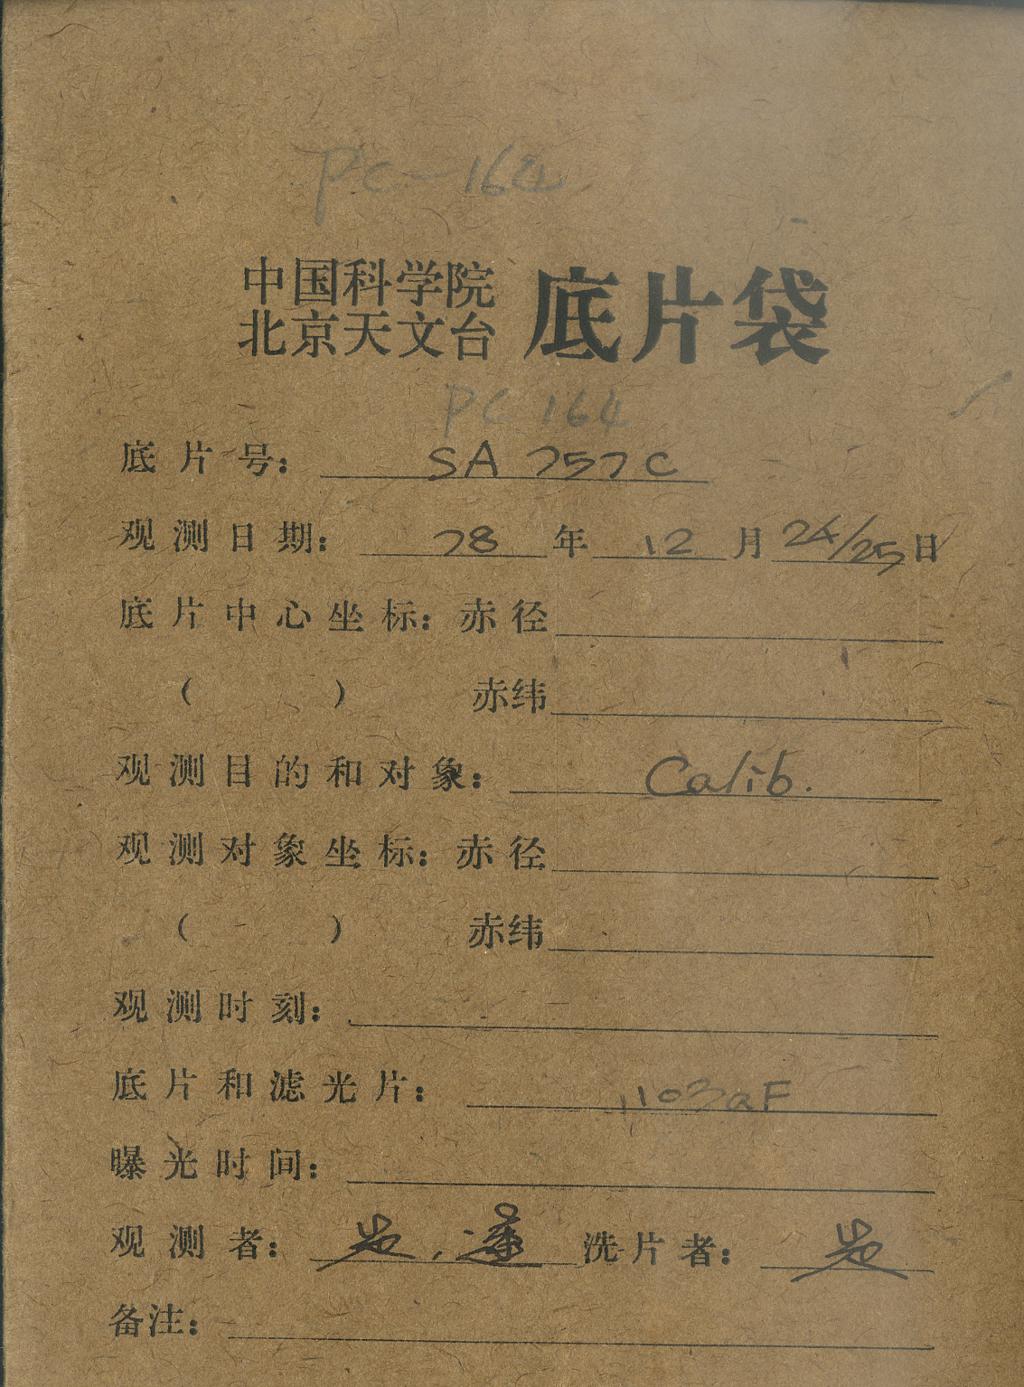 PC-164
中国科学院
北京天文台 底片袋
PC 164
底片号： SA 757C
观测日期： 78 年 12 月 24/25 日
底片中心坐标：赤径
（ ） 赤纬
观测目的和对象： Calib.
观测对象坐标：赤径
（ ） 赤纬
观测时刻：
底片和滤光片： 103aF
曝光时间：
观测者： 洗片者：
备注：